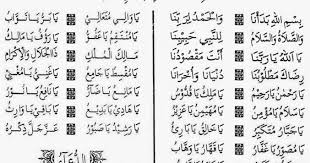 بِسْمِ اللهِ بَدَأْنَا وَالْحَمْدُ لِرَبِّنَا
وَالصَّلَاةُ وَالسَّلَامُ لِلنَّبِيِّ حَبِيبِنَا
يَا اللهُ يَا رَبَّنَا أَنْتَ مَقْصُودُنَا
رِضَاكَ مَطْلُوبُنَا دُنْيَانَا وَأُخْرَانَا
يَا رَحْمٰنُ يَا رَحِيمُ يَا مَلِكُ يَا قُدُّوسُ
يَا سَلَامُ يَا مُؤْمِنُ يَا مُهَيْمِنُ يَا عَزِيزُ
يَا جَبَّارُ يَا مُتَكَبِّرُ يَا خَالِقُ يَا بَارِئُ
يَا مُصَوِّرُ يَا غَفَّارُ يَا قَهَّارُ يَا وَهَّابُ
يَا وَالِي يَا مُتَعَالِي يَا بَرُّ يَا تَوَّابُ
يَا مُنْتَقِمُ يَا عَفُوُّ يَا رَؤُوفُ يَا مَالِكُ
مَالِكَ الْمُلْكِ ذَا الْجَلَالِ وَالْإِكْرَامِ
يَا مُقْسِطُ يَا جَامِعُ يَا غَنِيُّ يَا مُغْنِي
يَا مَانِعُ يَا ضَارُّ يَا نَافِعُ يَا نُورُ
يَا هَادِي يَا بَدِيعُ يَا بَاقِي يَا وَارِثُ
يَا رَشِيدُ يَا صَبُورُ عَزَّ جَلَّ ذِكْرُهُ
الدُّعَاءُ